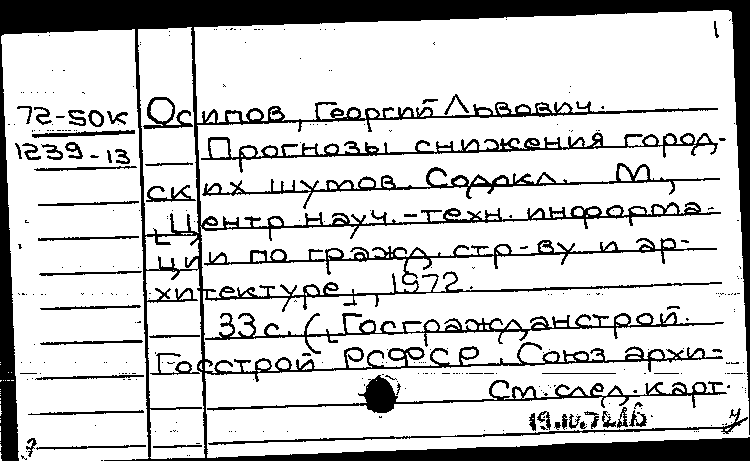 1
72-50к Осипов, Георгий Львович.
1239-13 Прогнозы снижения город-
ских шумов. Содокл. М.,
[Центр науч.-техн. информа-
ции по гражд. стр-ву и ар-
хитектуре], 1972.
33 с. ([Госгражданстрой.
Госстрой РСФСР. Союз архи-
См. след. карт.